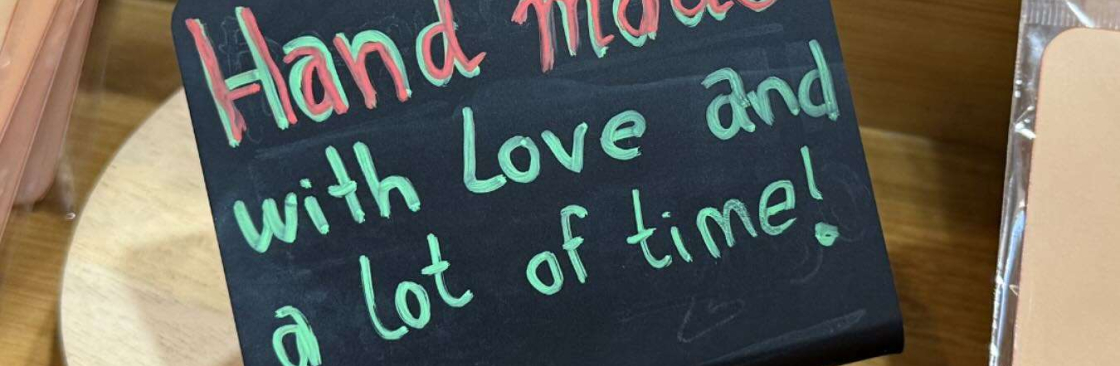 Hand made
with Love and
a lot of time!